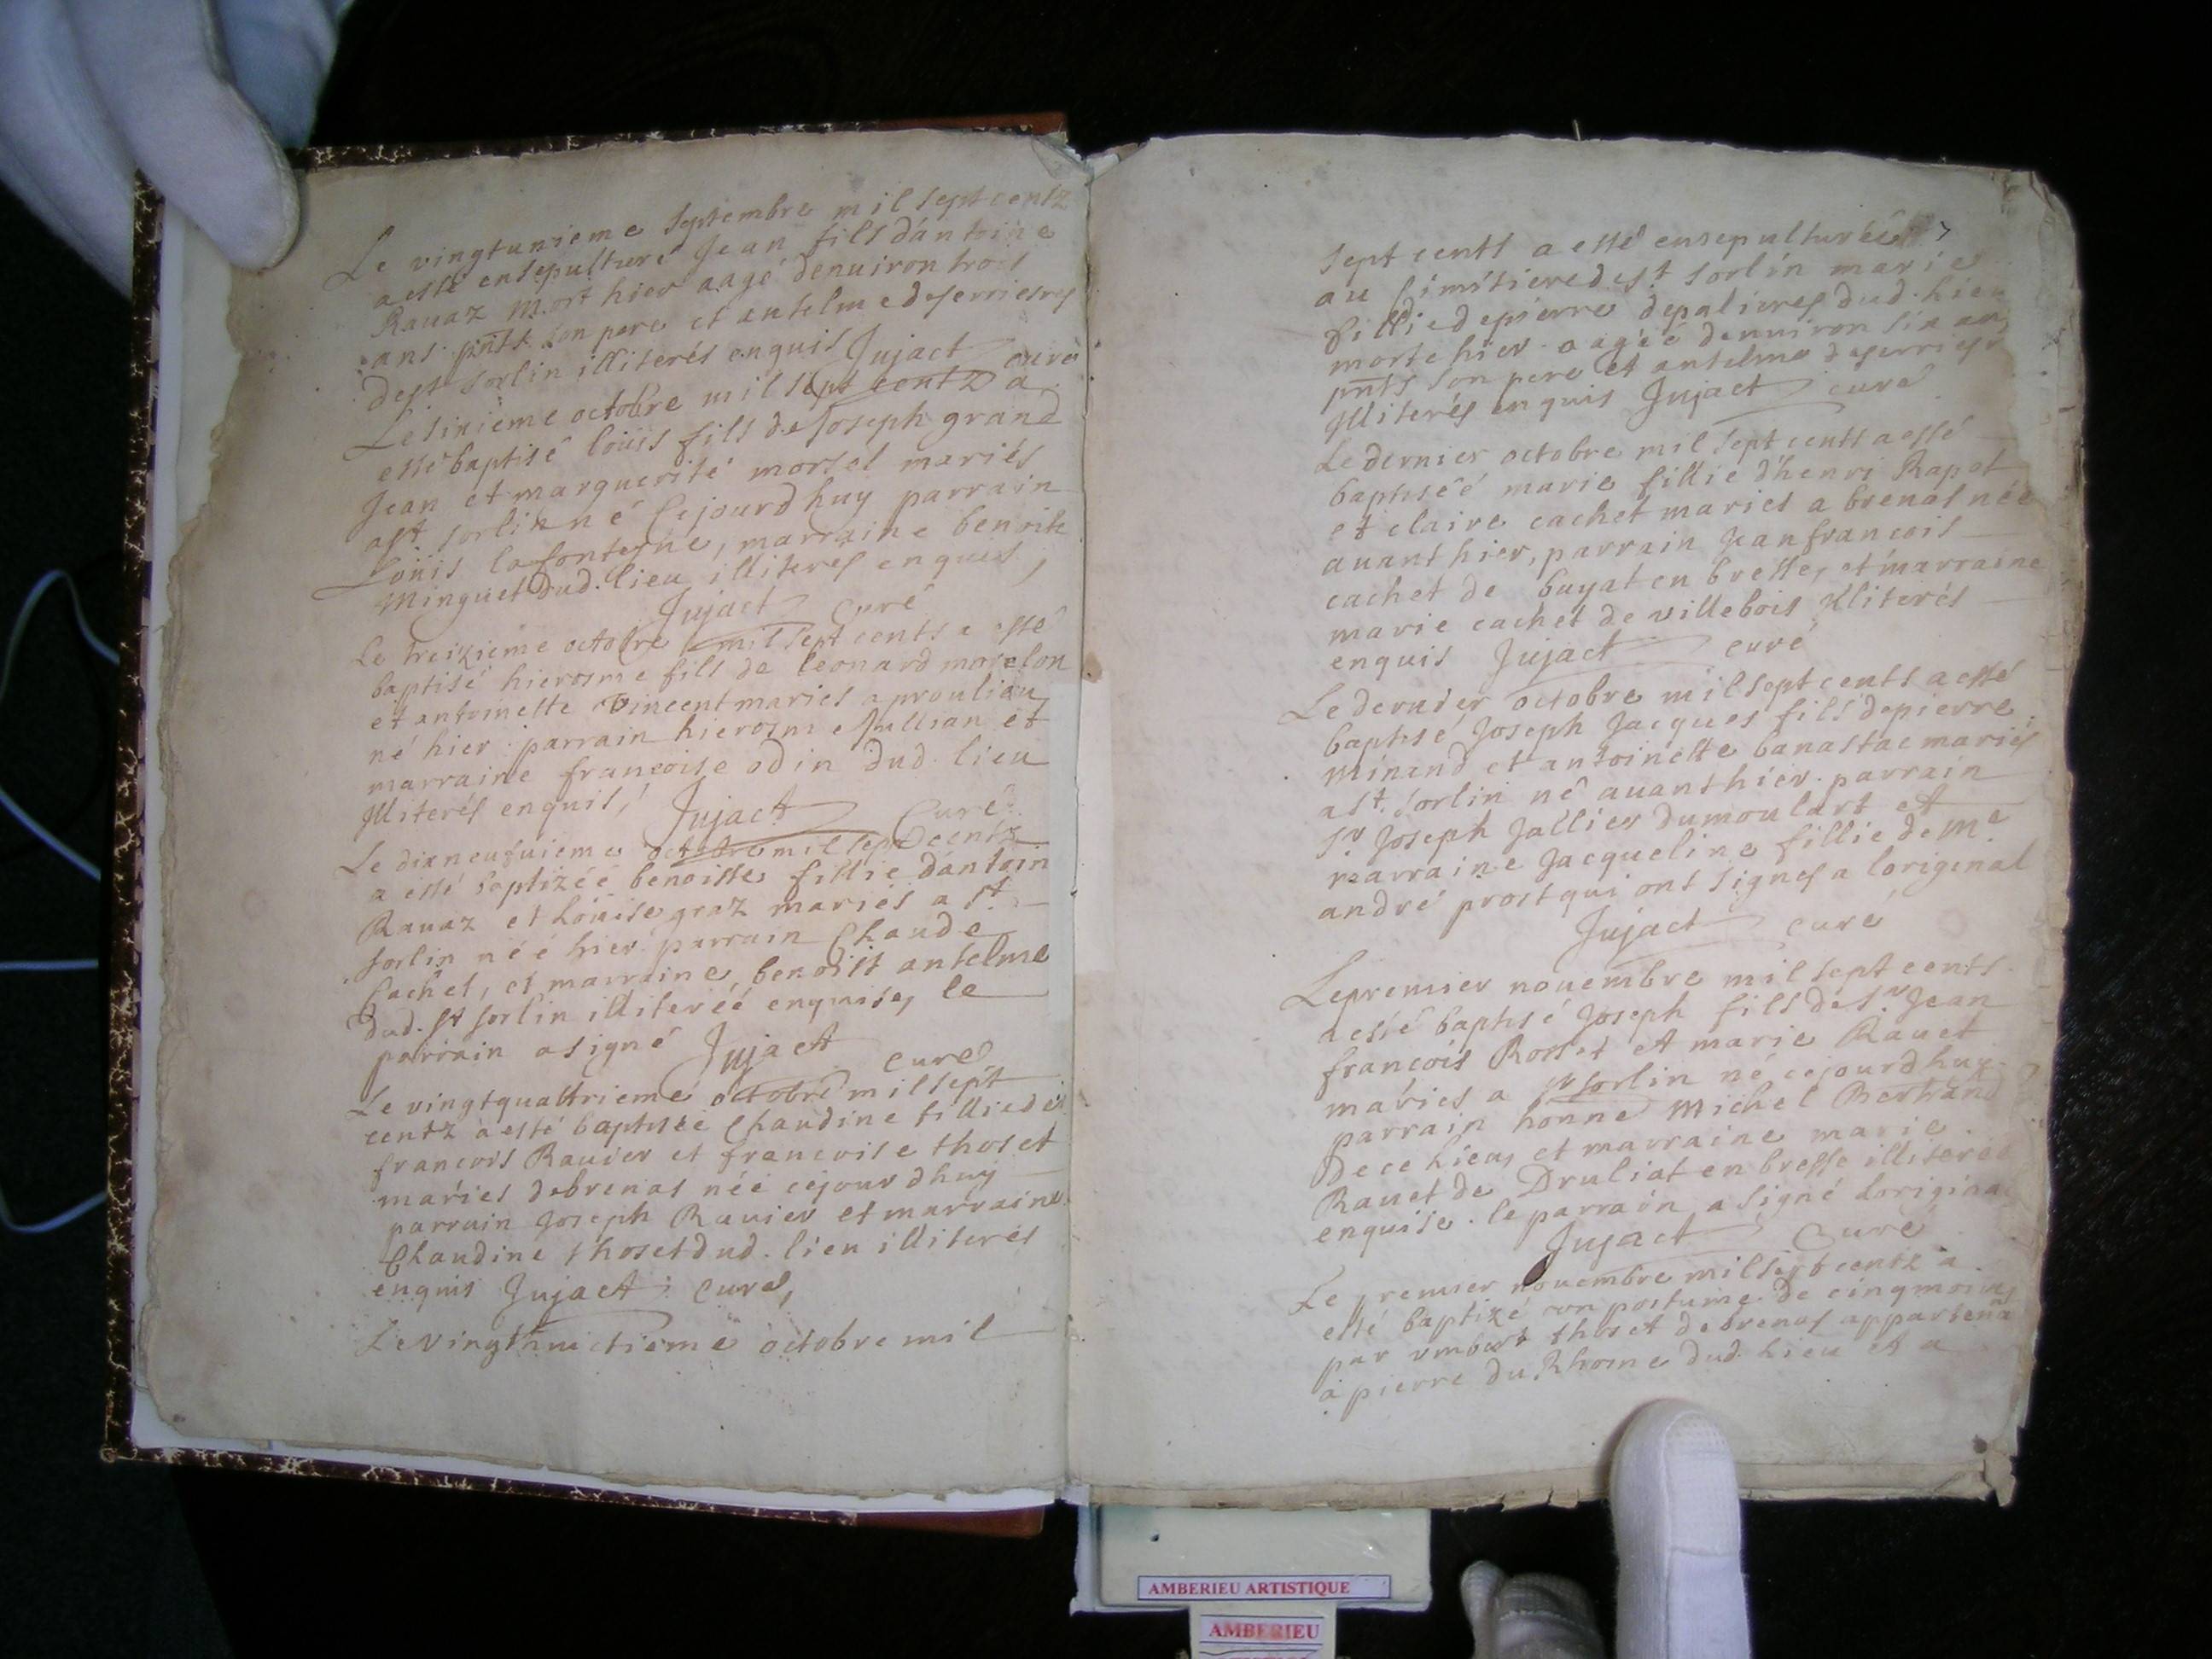 Le vingtunieme Septembre mil sept centz
a esté ensepulturé Jean fils dántoine
Rauaz mort hier aagé denuiron trois
ans pnts son pere et antelme deserrieres
dest sorlin illiterés enquis Jujact curé
Le sixieme octobre mil sept centz a
esté baptisé loüis fils de Joseph grand
Jean et marguerite morsel mariés
a st sorlin né cejourdhuy parrain
Loüis lafontesne, marraine benoite
Minguet dud. lieu illiterés enquis,
Jujact curé
Le treizieme octobre mil sept cents a esté
baptisé hierosme fils de leonard morelon
et antoinette vincent mariés a proulieu
né hier parrain hierosme Jullian et
marraine francoise odin dud. lieu
Illiterés enquis, Jujact Curé
Le dixneufuieme octobre mil sept centz
a esté baptizéé benoiste fillie dántoin
Rauaz et Loüise graz mariés a st
sorlin néé hier parrain Claude
Cachet, et marraine benoist antelme
dud. st sorlin illiteréé enquise, le
parrain a signé Jujact curé
Le vingtquattrieme octobre mil sept
centz a esté baptiséé Claudine fillie de
francois Rauier et francoise thoset
mariés debrenas néé cejourdhuy
parrain Joseph Rauier et marraine
Claudine thoset dud. lieu illiterés
enquis Jujact curé,
Le vingthuictieme octobre mil
sept cents a esté ensepulturéé
au Cimitiere dest sorlin marie
fillie depierre depalieres dud. lieu
morte hier aagéé denuiron six ans
pnts son pere et antelme deserrieres
Illiterés enquis Jujact curé
Le dernier octobre mil sept cents a esté
baptiséé marie fillie d'henri Rapet
et claire cachet mariés a brenas néé
auant hier, parrain Jean francois
cachet de buyat en bresse, et marraine
marie cachet de villebois Illiterés
enquis Jujact curé
Le dernier octobre mil sept cents a esté
baptisé Joseph Jacques fils depierre
Minand et antoinette banastac mariés
a st. sorlin né auanthier. parrain
sr Joseph Jallier dumoulart et
marraine Jacqueline fillie de Me
andré prost qui ont signés a loriginal
Jujact curé
Le premier nouembre mil sept cents
a esté baptisé Joseph fils de sr Jean
francois Rosset et marie Rauet
mariés a st sorlin né cejourdhuy
parrain honne Michel Bertrand
de ce lieu, et marraine marie
Rauet de Druliat en bresse illiteréé
enquise. le parrain a signé Loriginal
Jujact Curé
Le premier nouembre mil sept centz a
esté baptizé son postume de cinq mois
par vmbert thoset debrenas appartena
a pierre du Rhosne dud. lieu et a
AMBERIEU ARTISTIQUE
AMBERIEU